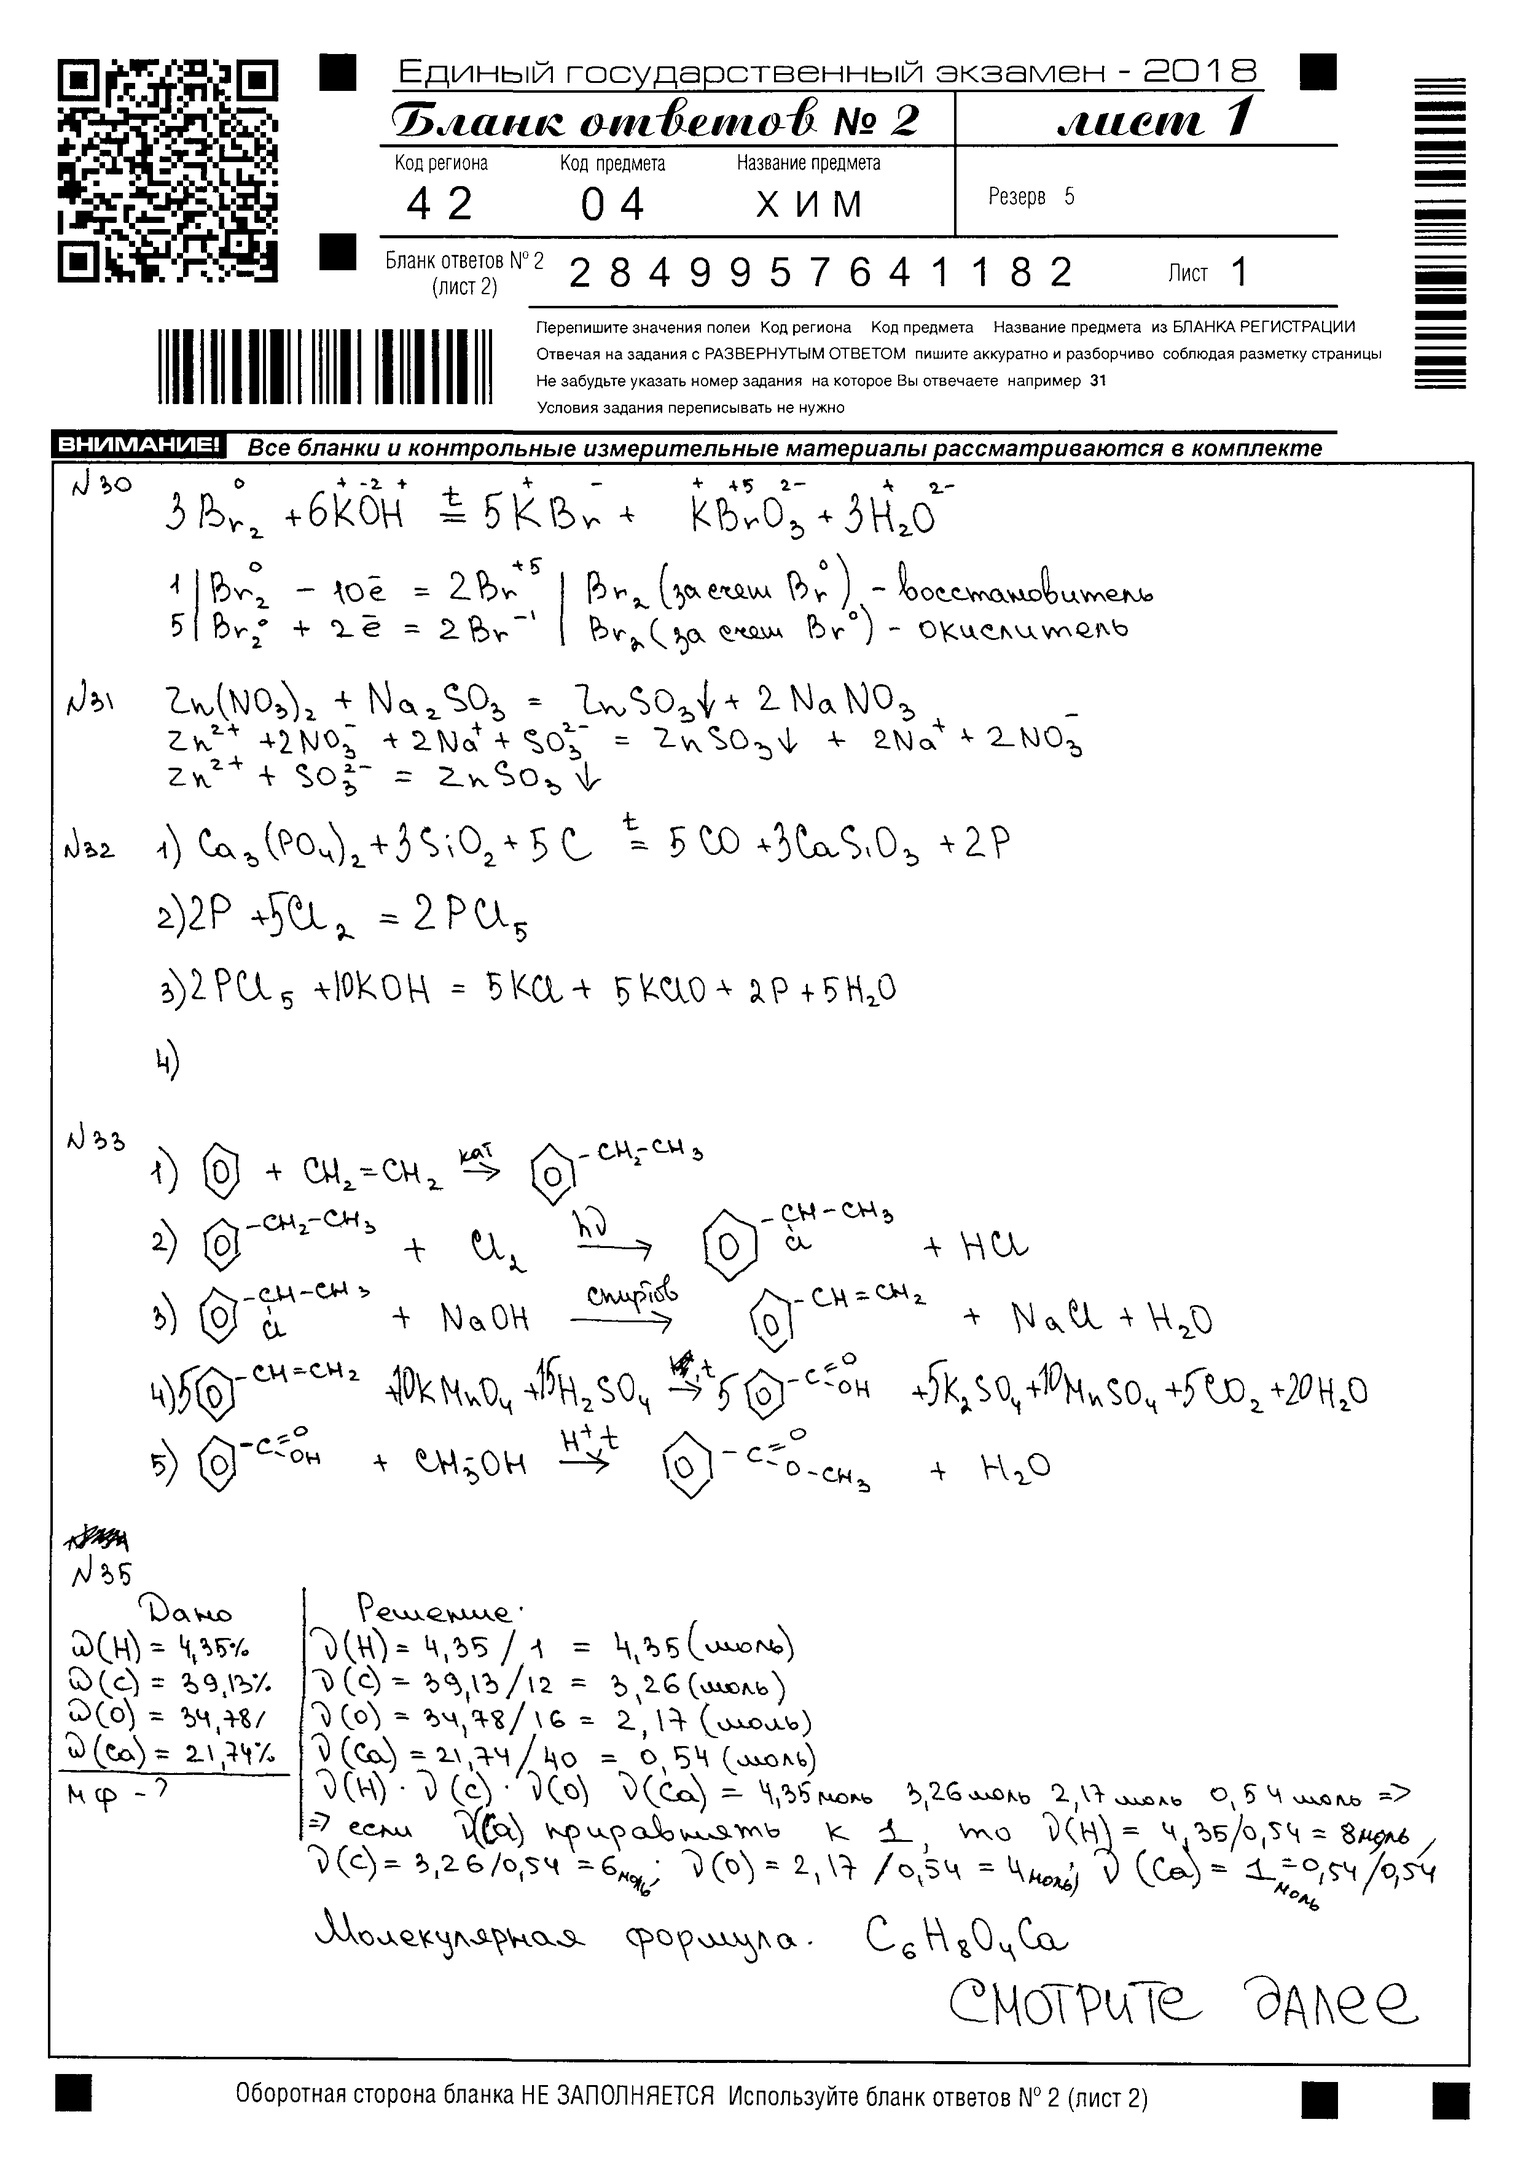 Единый государственный экзамен - 2018
Бланк ответов № 2 лист 1
Код региона Код предмета Название предмета
42 04 ХИМ Резерв 5
Бланк ответов № 2 (лист 2) 2849957641182 Лист 1
Перепишите значения полей Код региона Код предмета Название предмета из БЛАНКА РЕГИСТРАЦИИ
Отвечая на задания с РАЗВЕРНУТЫМ ОТВЕТОМ пишите аккуратно и разборчиво соблюдая разметку страницы
Не забудьте указать номер задания на которое Вы отвечаете например 31
Условия задания переписывать не нужно
ВНИМАНИЕ! Все бланки и контрольные измерительные материалы рассматриваются в комплекте
N30 3Br₂⁰ + 6K⁺O⁻²H⁺ =t= 5K⁺Br⁻ + K⁺Br⁺⁵O₃²⁻ + 3H₂⁺O²⁻
1 | Br₂⁰ - 10ē = 2Br⁺⁵ | Br₂ (за счет Br⁰) - восстановитель
5 | Br₂⁰ + 2ē = 2Br⁻¹ | Br₂ (за счет Br⁰) - окислитель
N31 Zn(NO₃)₂ + Na₂SO₃ = ZnSO₃↓ + 2NaNO₃
Zn²⁺ + 2NO₃⁻ + 2Na⁺ + SO₃²⁻ = ZnSO₃↓ + 2Na⁺ + 2NO₃⁻
Zn²⁺ + SO₃²⁻ = ZnSO₃↓
N32 1) Ca₃(PO₄)₂ + 3SiO₂ + 5C =t= 5CO + 3CaSiO₃ + 2P
2) 2P + 5Cl₂ = 2PCl₅
3) 2PCl₅ + 10KOH = 5KCl + 5KClO + 2P + 5H₂O
4)
N33
1) + CH₂=CH₂ кат → -CH₂-CH₃
2) -CH₂-CH₃ + Cl₂ hν → -CH-CH₃ Cl + HCl
3) -CH-CH₃ Cl + NaOH спиртов → -CH=CH₂ + NaCl + H₂O
4) 5 -CH=CH₂ + 10KMnO₄ + 15H₂SO₄ ,t → 5 -C=O -OH + 5K₂SO₄ + 10MnSO₄ + 5CO₂ + 20H₂O
5) -C=O -OH + CH₃OH H⁺,t → -C=O -O-CH₃ + H₂O
N35
Дано Решение.
ω(H) = 4,35% ν(H) = 4,35 / 1 = 4,35 (моль)
ω(C) = 39,13% ν(C) = 39,13/12 = 3,26 (моль)
ω(O) = 34,78/ ν(O) = 34,78/16 = 2,17 (моль)
ω(Ca) = 21,74% ν(Ca) = 21,74/40 = 0,54 (моль)
МФ - ? ν(H) · ν(C) · ν(O) ν(Ca) = 4,35 моль 3,26 моль 2,17 моль 0,54 моль =>
=> если ν(Ca) приравнять к 1, то ν(H) = 4,35/0,54 = 8 моль,
ν(C) = 3,26/0,54 = 6 моль; ν(O) = 2,17/0,54 = 4 моль; ν(Ca) = 1 моль = 0,54/0,54
Молекулярная формула. C₆H₈O₄Ca
СМОТРИТЕ ДАЛЕЕ
Оборотная сторона бланка НЕ ЗАПОЛНЯЕТСЯ Используйте бланк ответов № 2 (лист 2)